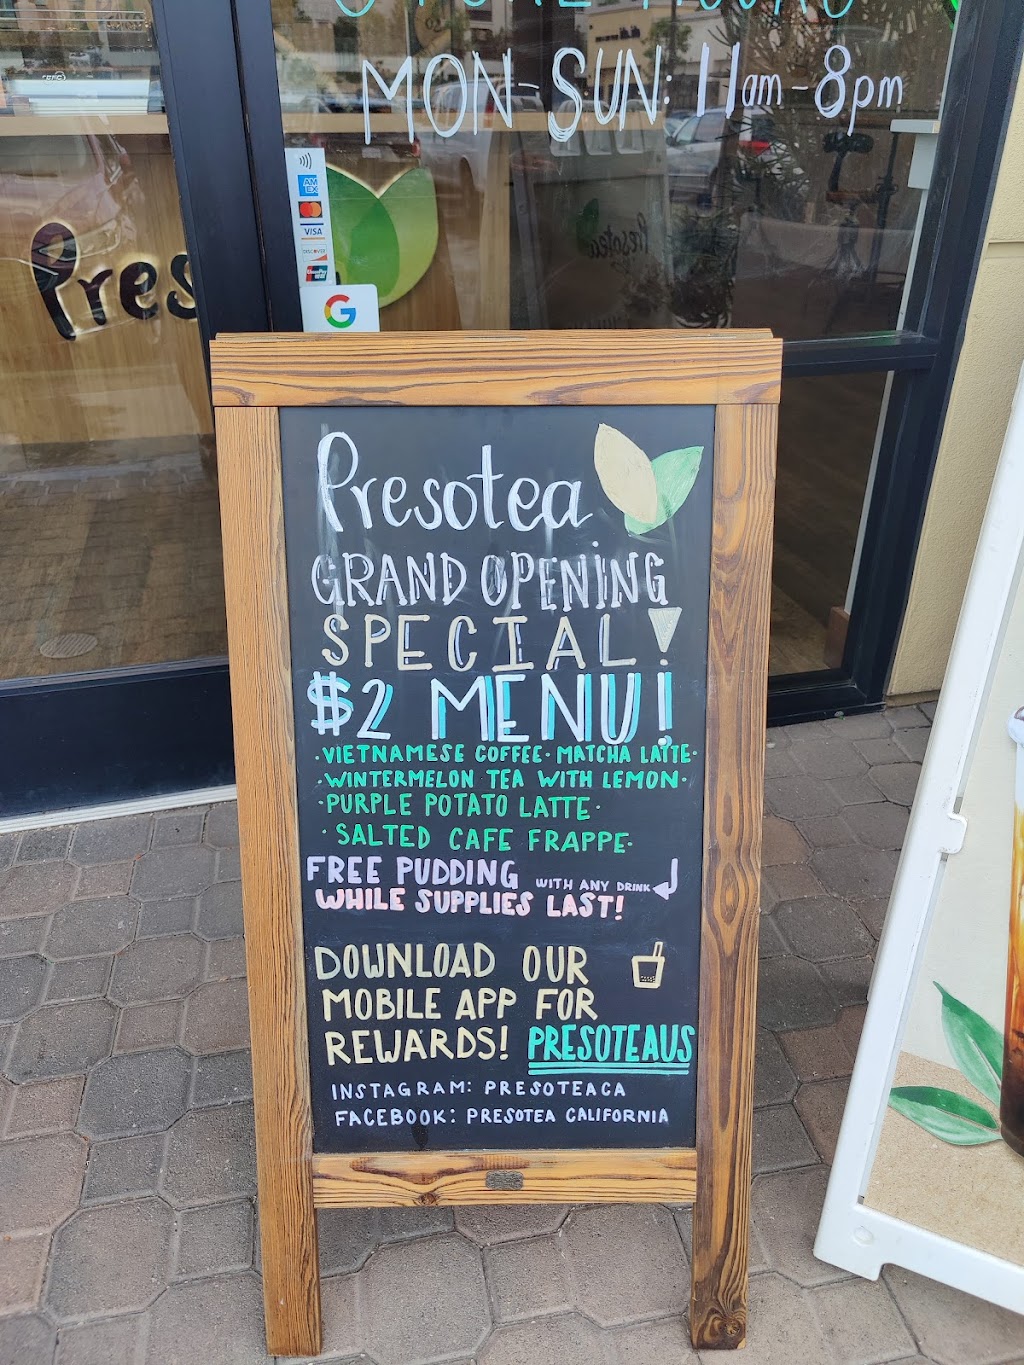 STORE HOURS
MON-SUN: 11am-8pm
AMEX
VISA
DISCOVER
UnionPay
G
Pres
Presotea
GRAND OPENING
SPECIAL!
$2 MENU!
·VIETNAMESE COFFEE· MATCHA LATTE·
·WINTERMELON TEA WITH LEMON·
·PURPLE POTATO LATTE·
· SALTED CAFE FRAPPE·
FREE PUDDING WITH ANY DRINK
WHILE SUPPLIES LAST!
DOWNLOAD OUR
MOBILE APP FOR
REWARDS! PRESOTEAUS
INSTAGRAM: PRESOTEACA
FACEBOOK: PRESOTEA CALIFORNIA